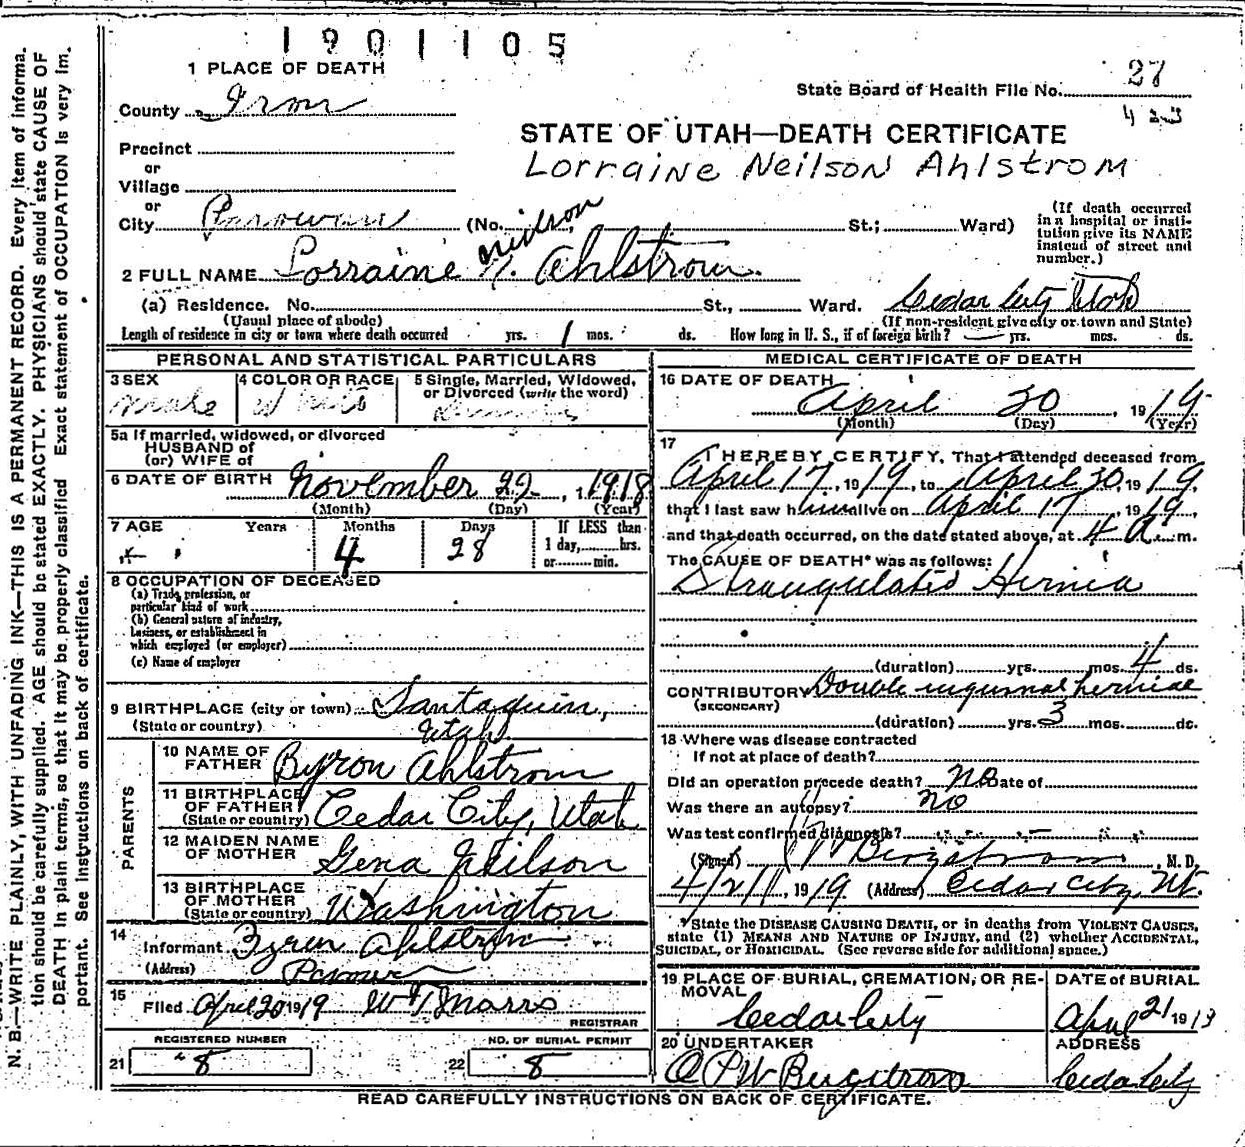 N. B.—WRITE PLAINLY, WITH UNFADING INK—THIS IS A PERMANENT RECORD. Every item of informa-
tion should be carefully supplied. AGE should be stated EXACTLY. PHYSICIANS should state CAUSE OF
DEATH in plain terms, so that it may be properly classified. Exact statement of OCCUPATION is very im-
portant. See instructions on back of certificate.
1901105
1 PLACE OF DEATH
County Iron
Precinct
or
Village
or
City Parowan (No. St.; Ward)
State Board of Health File No. 27
423
STATE OF UTAH—DEATH CERTIFICATE
Lorraine Neilson Ahlstrom
(If death occurred
in a hospital or insti-
tution give its NAME
instead of street and
number.)
Neilson
2 FULL NAME Lorraine N. Ahlstrom.
(a) Residence. No. St., Ward. Cedar City Utah
(Usual place of abode) (If non-resident give city or town and State)
Length of residence in city or town where death occurred yrs. 1 mos. ds. How long in U. S., if of foreign birth? yrs. mos. ds.
PERSONAL AND STATISTICAL PARTICULARS
3 SEX
Male
4 COLOR OR RACE
White
5 Single, Married, Widowed,
or Divorced (write the word)
5a If married, widowed, or divorced
HUSBAND of
(or) WIFE of
6 DATE OF BIRTH November 22, 1918
(Month) (Day) (Year)
7 AGE Years Months Days If LESS than
4 28 1 day, hrs.
or min.
8 OCCUPATION OF DECEASED
(a) Trade, profession, or
particular kind of work
(b) General nature of industry,
business, or establishment in
which employed (or employer)
(c) Name of employer
9 BIRTHPLACE (city or town) Santaquin,
(State or country) Utah.
PARENTS
10 NAME OF
FATHER Byron Ahlstrom
11 BIRTHPLACE
OF FATHER
(State or country) Cedar City, Utah
12 MAIDEN NAME
OF MOTHER Gena Neilson
13 BIRTHPLACE
OF MOTHER
(State or country) Washington
14
Informant Byron Ahlstrom
(Address) Parowan
15
Filed April 20 1919 Morris
REGISTRAR
REGISTERED NUMBER
21 8
NO. OF BURIAL PERMIT
22 8
MEDICAL CERTIFICATE OF DEATH
16 DATE OF DEATH
April 20, 1919
(Month) (Day) (Year)
17
I HEREBY CERTIFY, That I attended deceased from
April 17, 1919, to April 20, 1919,
that I last saw him alive on April 17, 1919,
and that death occurred, on the date stated above, at 4 A. m.
The CAUSE OF DEATH* was as follows:
Strangulated Hernia
(duration) yrs. mos. 4 ds.
CONTRIBUTORY Double inguinal herniae
(SECONDARY)
(duration) yrs. 3 mos. ds.
18 Where was disease contracted
If not at place of death?
Did an operation precede death? No Date of
Was there an autopsy? No
Was test confirmed diagnosis?
(Signed) Bergstrom, M. D.
4/21, 1919 (Address) Cedar City, Ut.
*State the DISEASE CAUSING DEATH, or in deaths from VIOLENT CAUSES,
state (1) MEANS AND NATURE OF INJURY, and (2) whether ACCIDENTAL,
SUICIDAL, or HOMICIDAL. (See reverse side for additional space.)
19 PLACE OF BURIAL, CREMATION, OR RE-
MOVAL
Cedar City
DATE of BURIAL
April 21 1919
20 UNDERTAKER
Bergstrom
ADDRESS
Cedar City
READ CAREFULLY INSTRUCTIONS ON BACK OF CERTIFICATE.